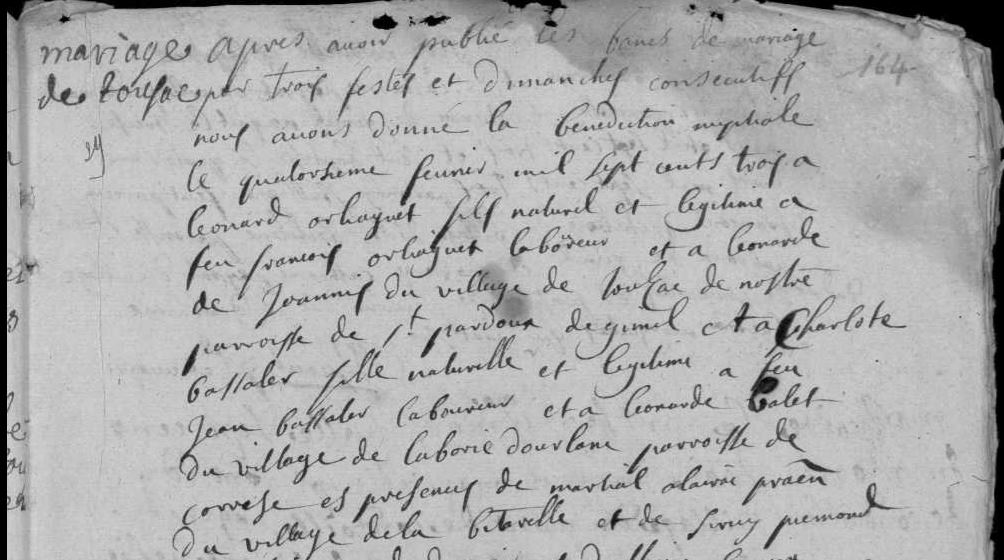 mariage apres avoir publié les bancs de mariage
de touzac par trois festes et dimanches consecutifs 164
nous avons donné la benediction nuptiale
le quatorsieme fevrier mil sept cents trois a
leonard orliaguet fils naturel et legitime a
feu francois orliaguet laboureur et a leonarde
de Joannis du village de touzac de nostre
parroisse de st pardoux de gimel et a Charlote
bassaler fille naturelle et legitime a feu
Jean bassaler laboureur et a leonarde balet
du village de laborie dourlane parroisse de
correse es presences de martial
du village de la et de